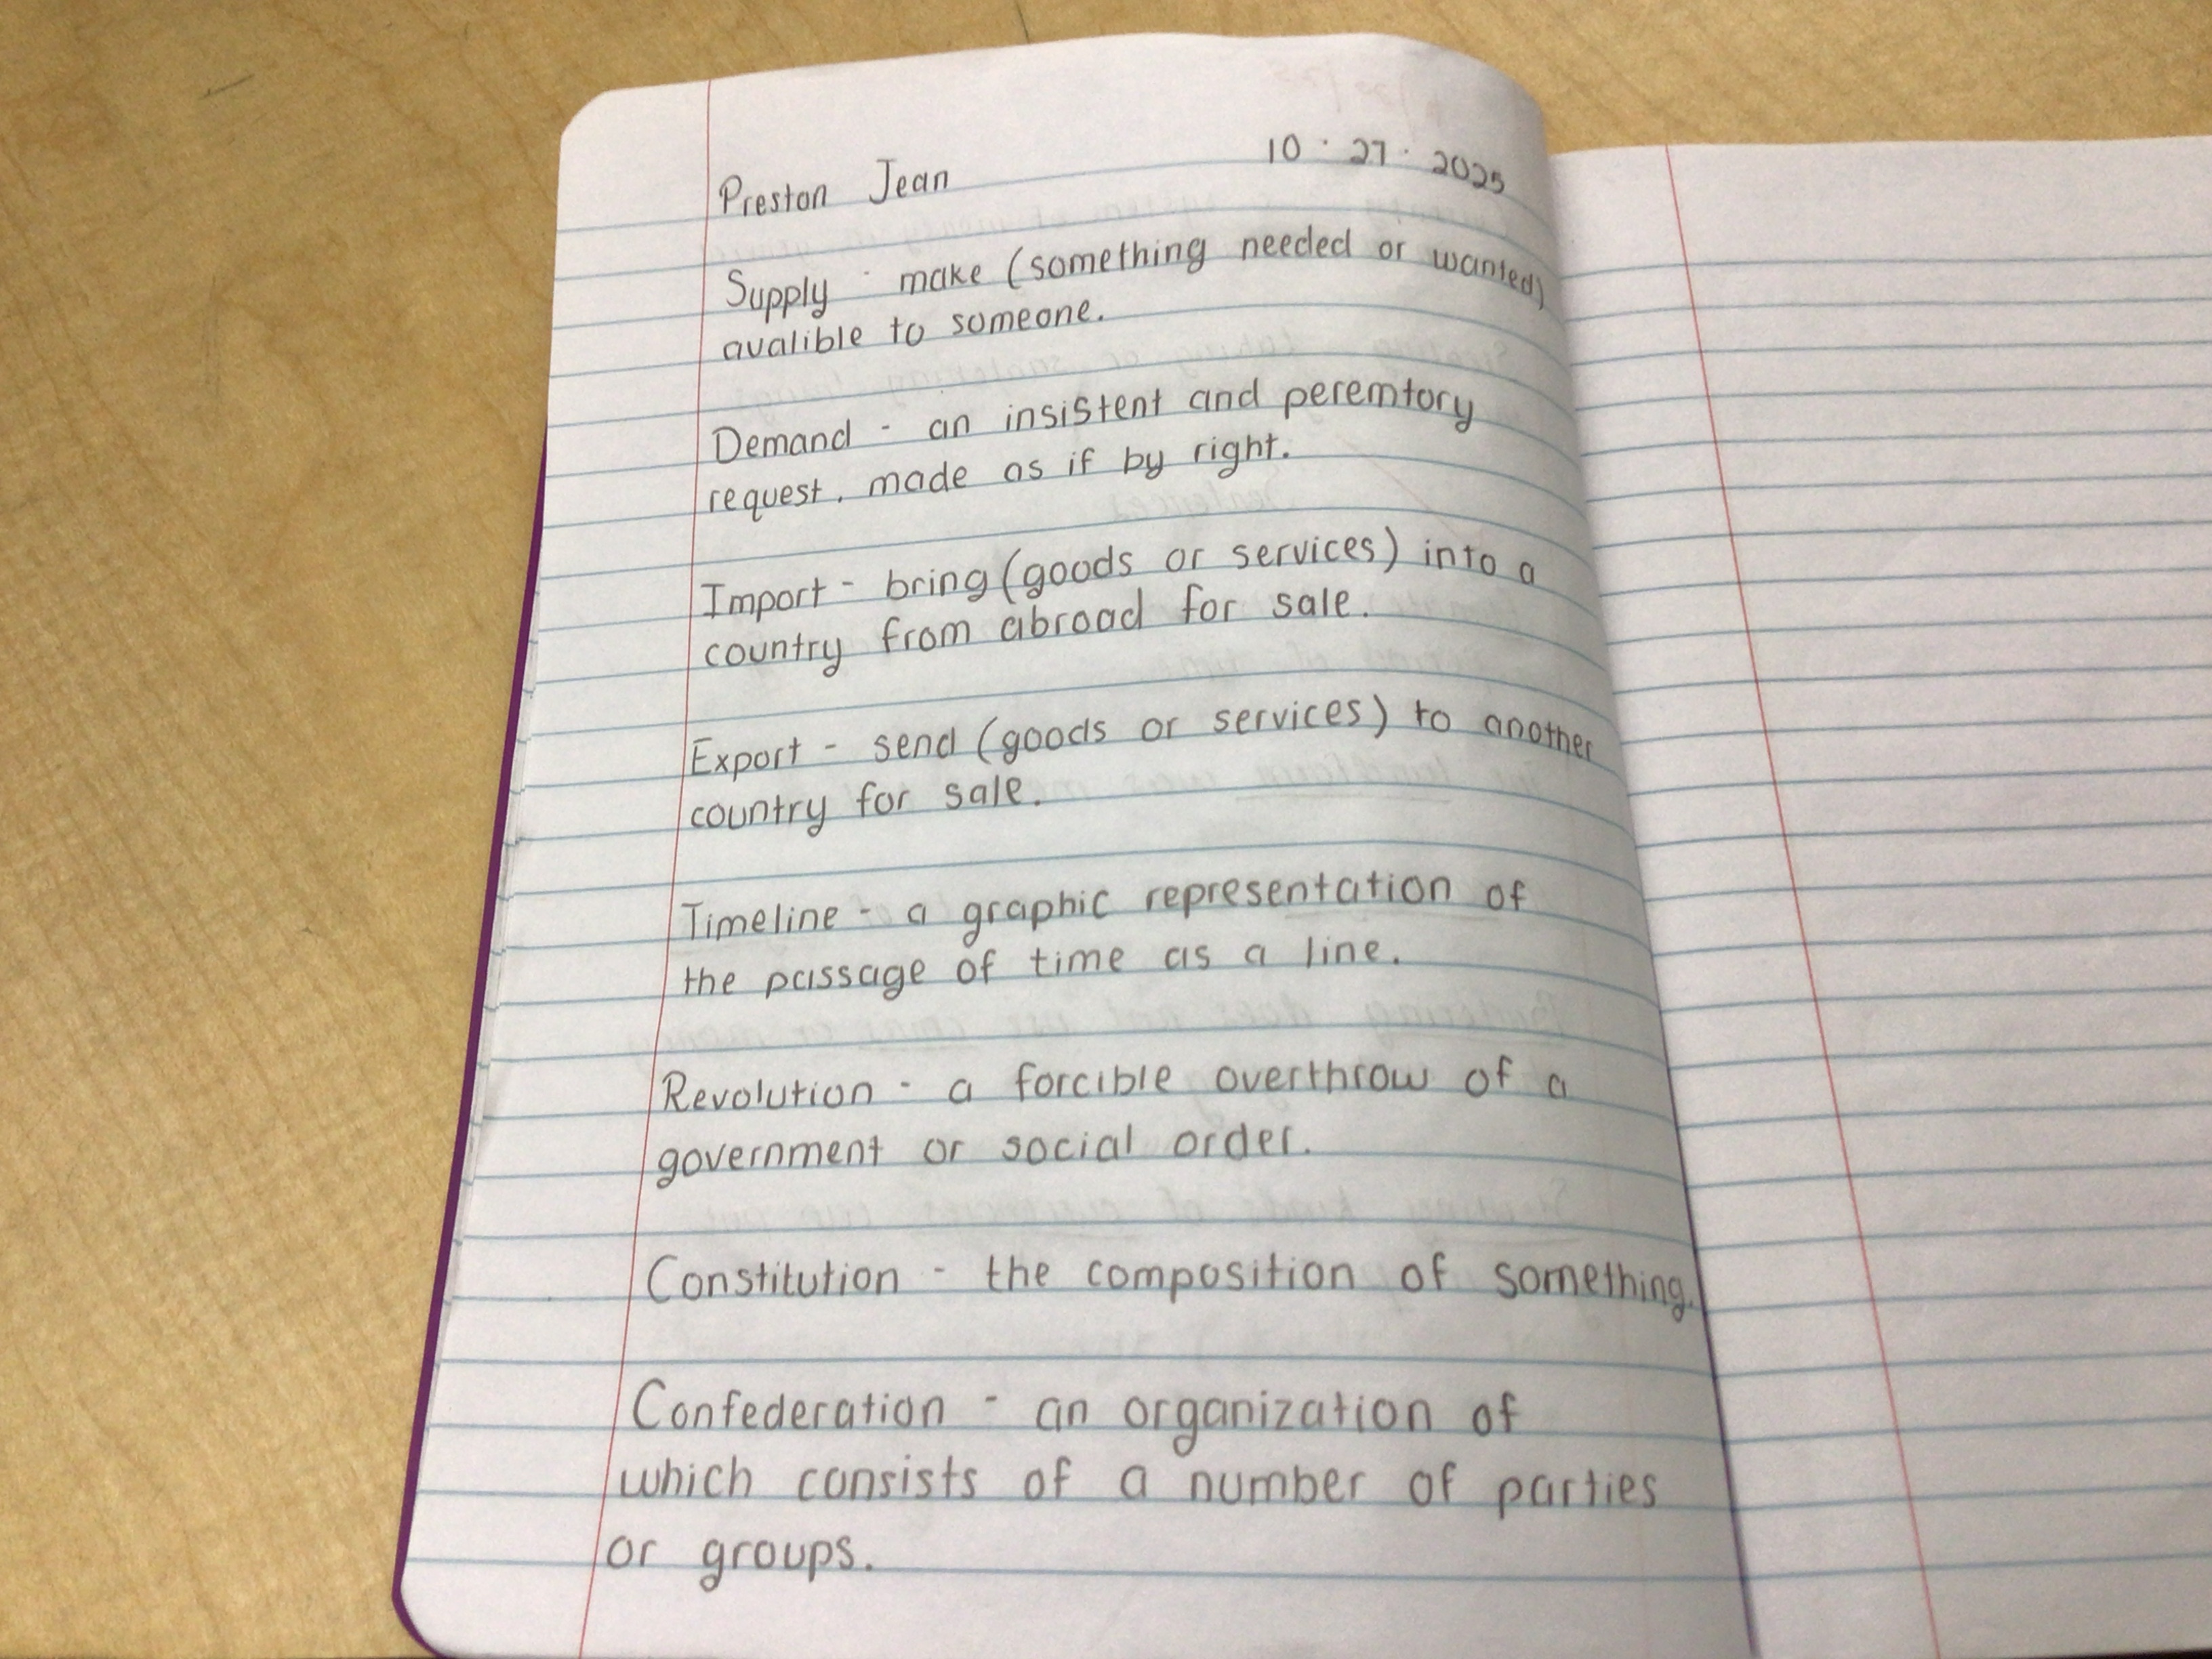 Preston Jean 10 · 27 · 2025
Supply - make (something needed or wanted)
avalible to someone.
Demand - an insistent and peremtory
request, made as if by right.
Import - bring (goods or services) into a
country from abroad for sale.
Export - send (goods or services) to another
country for sale.
Timeline - a graphic representation of
the passage of time as a line.
Revolution - a forcible overthrow of a
government or social order.
Constitution - the composition of something.
Confederation - an organization of
which consists of a number of parties
or groups.